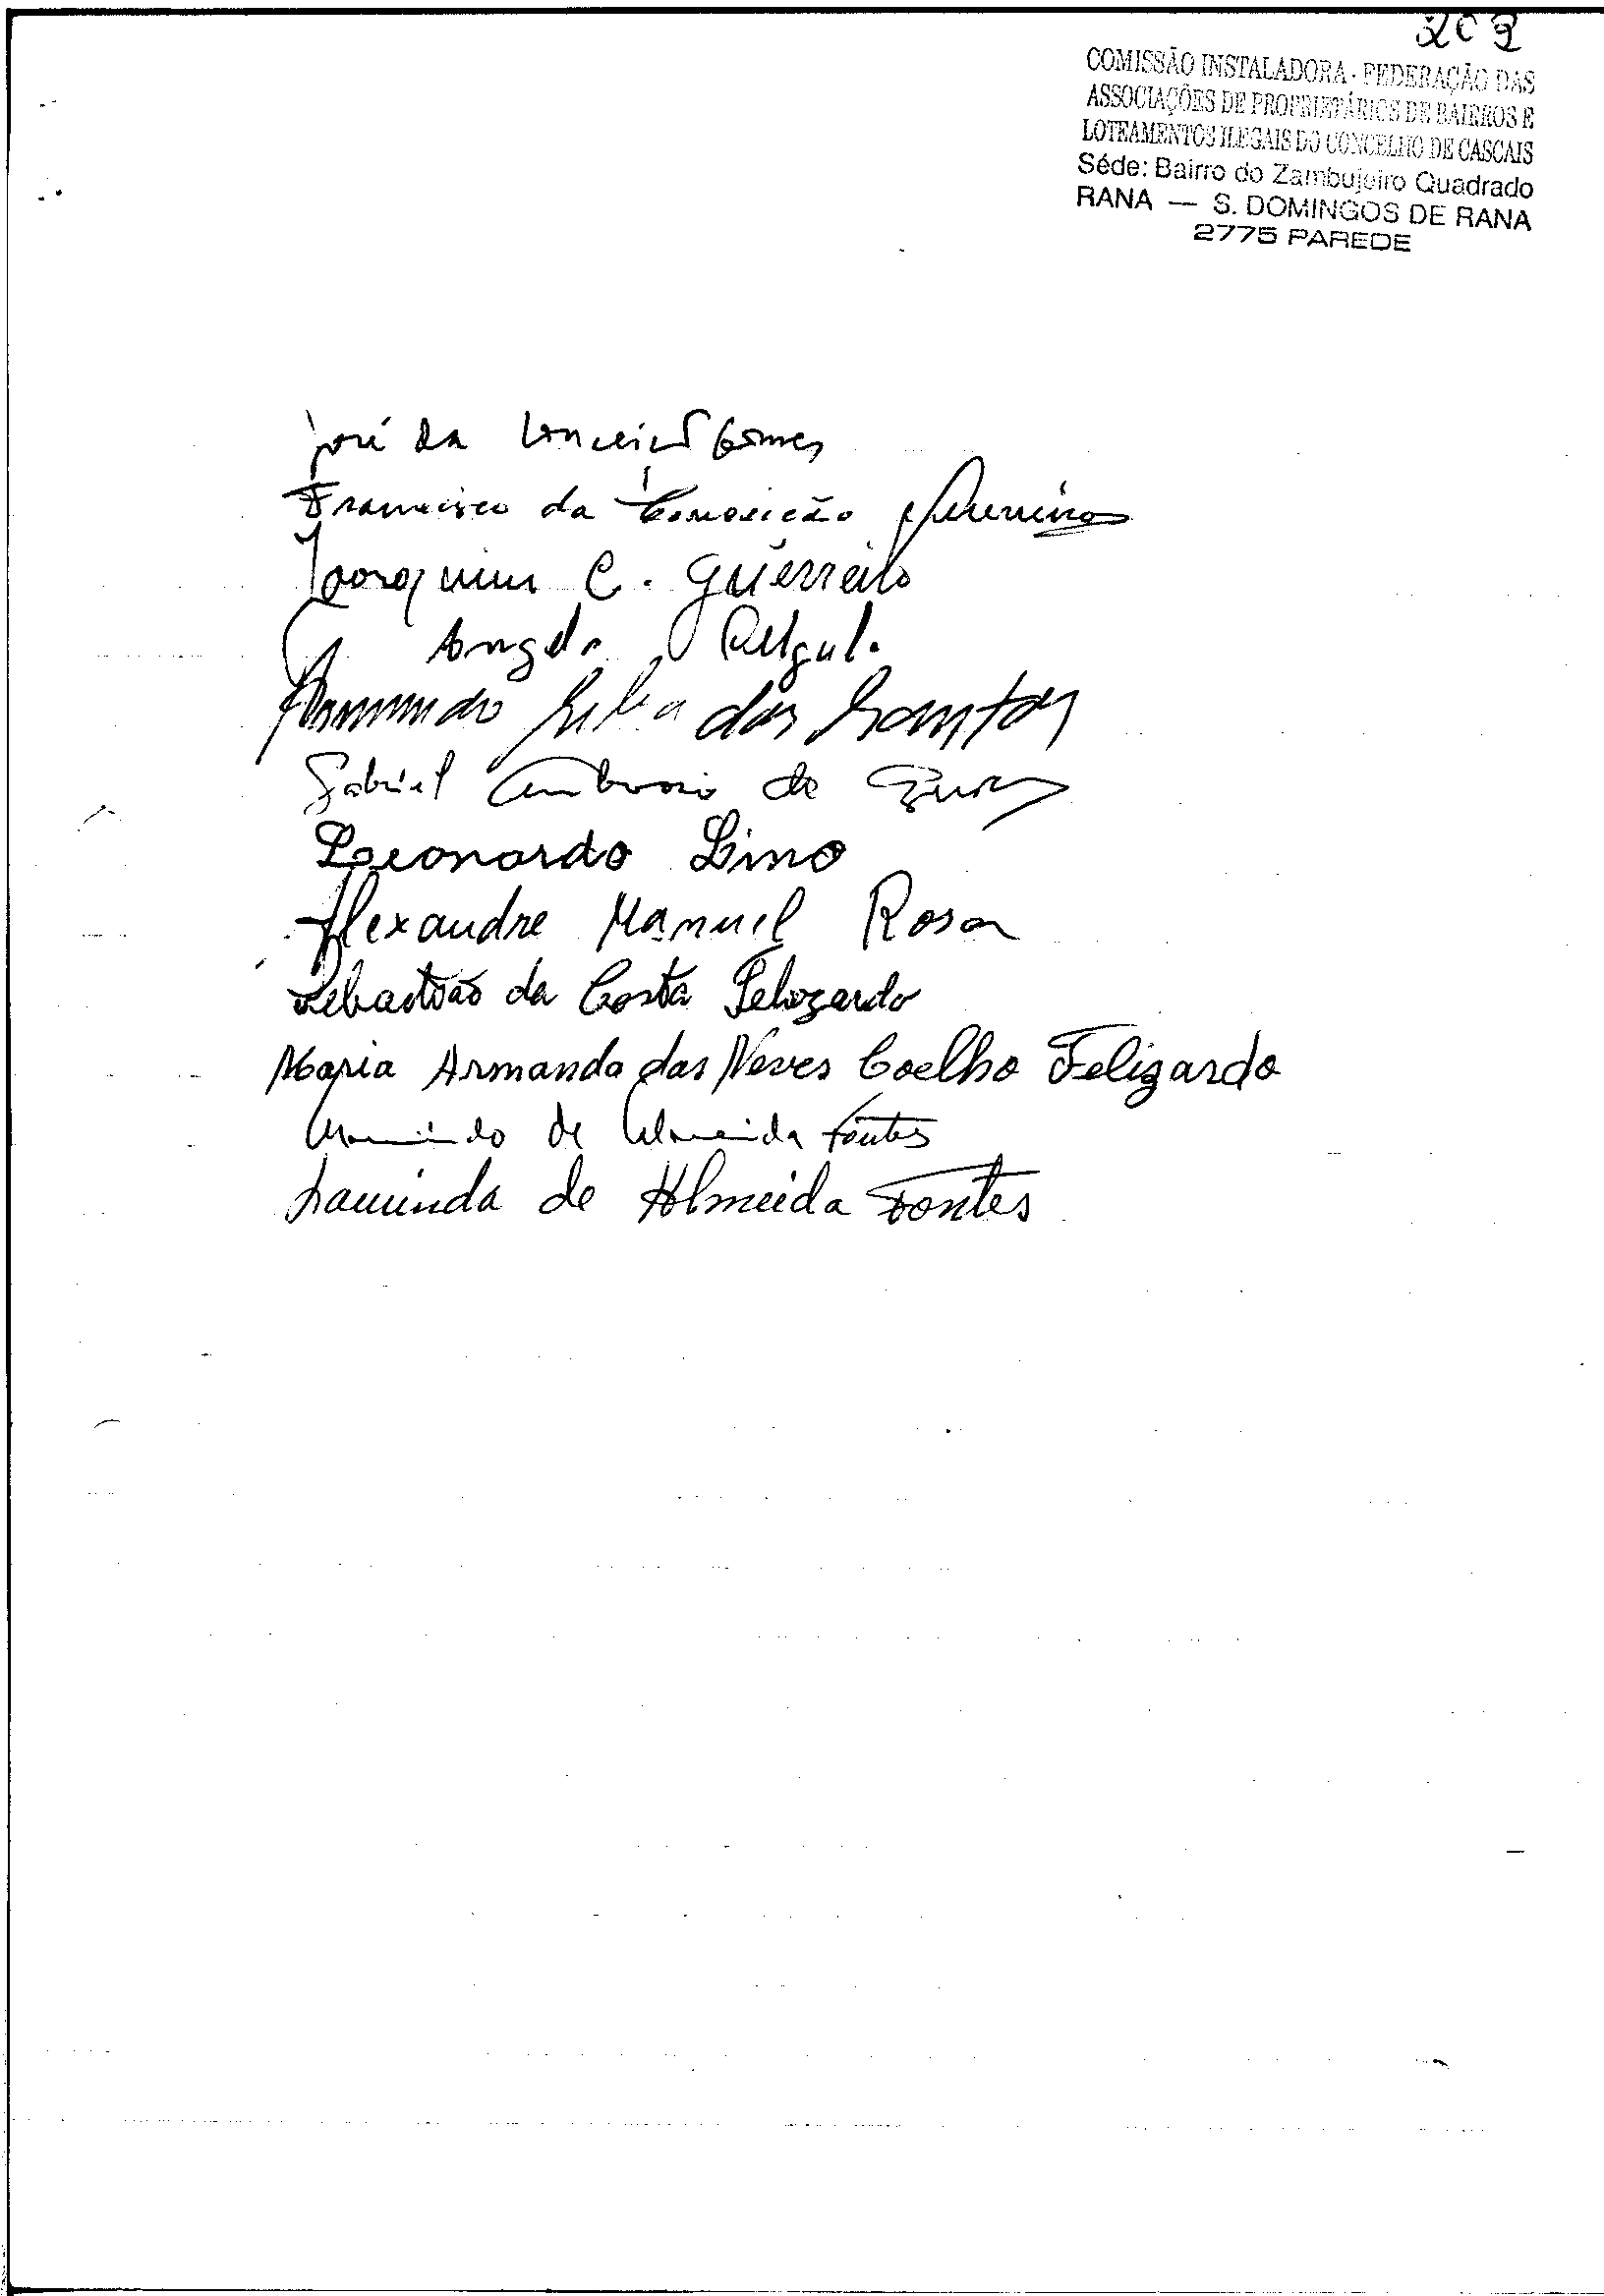 202
COMISSÃO INSTALADORA - FEDERAÇÃO DAS
ASSOCIAÇÕES DE PROPRIETÁRIOS DE BAIRROS E
LOTEAMENTOS ILEGAIS DO CONCELHO DE CASCAIS
Séde: Bairro do Zambujeiro Quadrado
RANA — S. DOMINGOS DE RANA
2775 PAREDE
José da Conceição Gomes
Francisco da Conceição
Joaquim C. Guerreiro
Angelo
Armando Silva dos Santos
Gabriel Ambrosio de
Leonardo Lino
Alexandre Manuel Rosa
Sebastião da Costa Felizardo
Maria Armanda das Neves Coelho Felizardo
de Almeida Fontes
Laurinda de Almeida Fontes